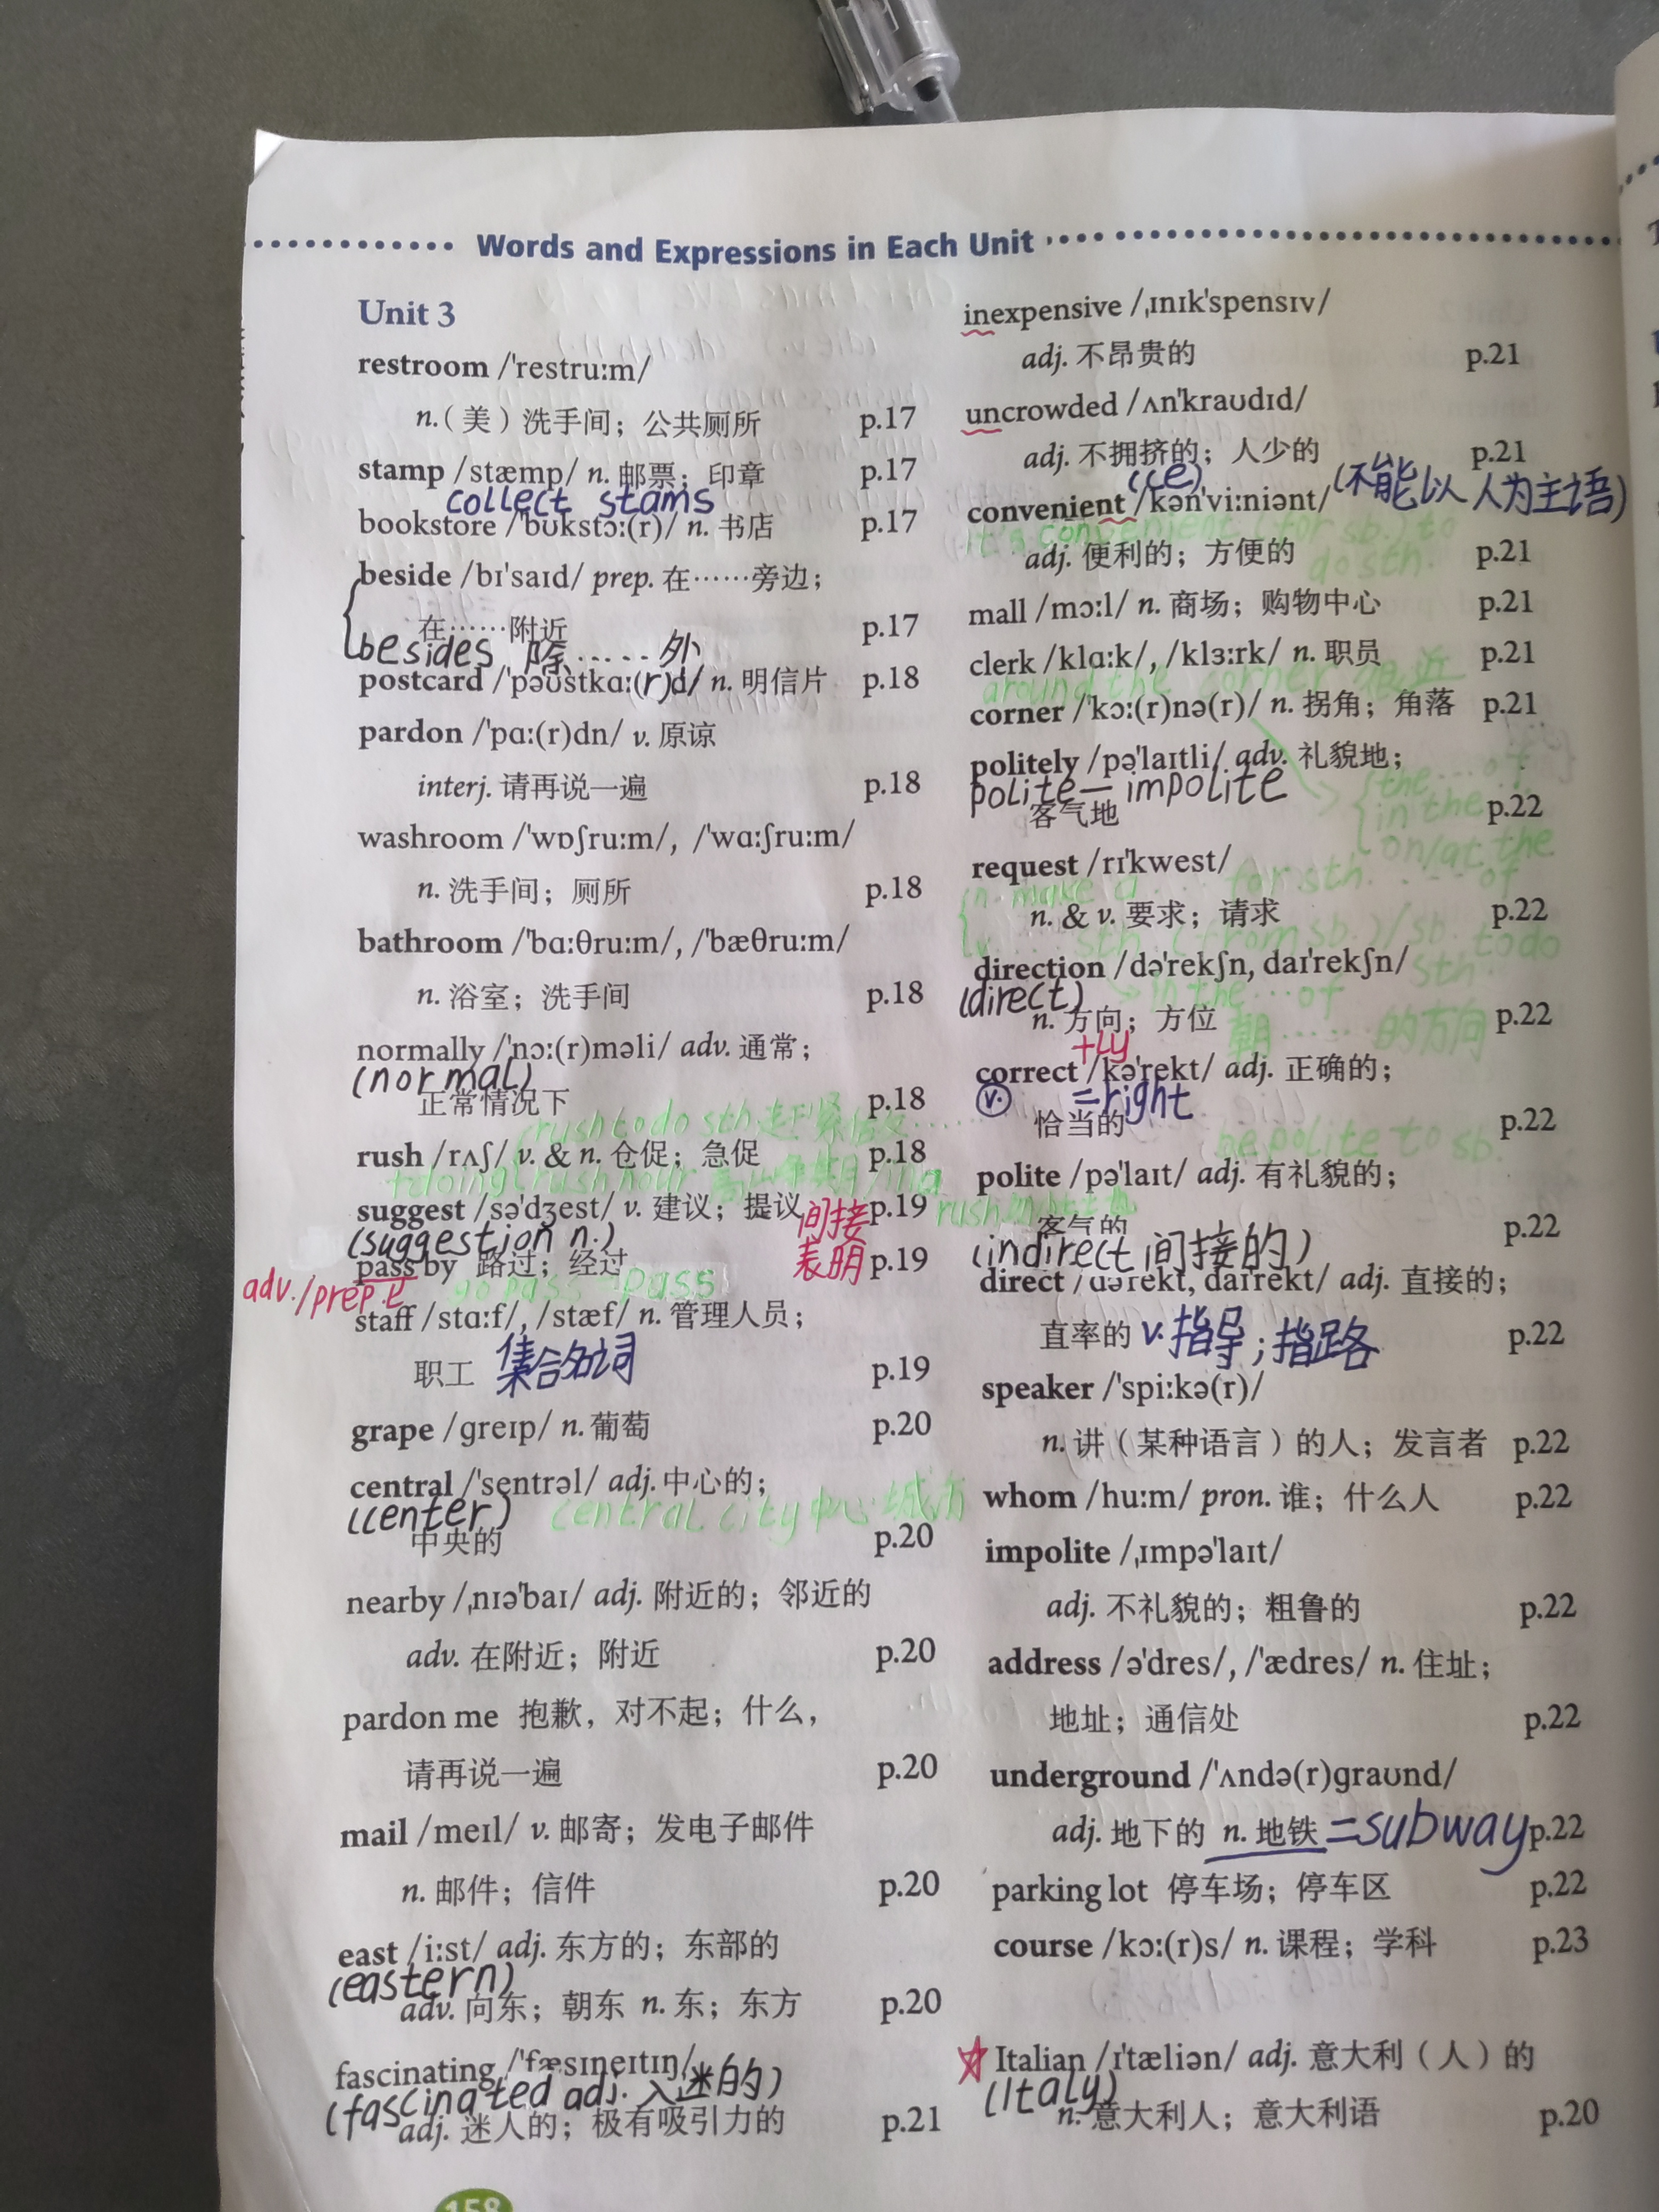 Words and Expressions in Each Unit
Unit 3
restroom /ˈrestruːm/
n.（美）洗手间；公共厕所 p.17
stamp /stæmp/ n. 邮票；印章 p.17
collect stams
bookstore /ˈbʊkstɔː(r)/ n. 书店 p.17
beside /bɪˈsaɪd/ prep. 在……旁边；
在……附近 p.17
besides 除……外
postcard /ˈpəʊstkɑː(r)d/ n. 明信片 p.18
pardon /ˈpɑː(r)dn/ v. 原谅
interj. 请再说一遍 p.18
washroom /ˈwɒʃruːm/, /ˈwɑːʃruːm/
n. 洗手间；厕所 p.18
bathroom /ˈbɑːθruːm/, /ˈbæθruːm/
n. 浴室；洗手间 p.18
normally /ˈnɔː(r)məli/ adv. 通常；
(normal)
正常情况下 p.18
rush to do sth. 赶紧
rush /rʌʃ/ v. & n. 仓促；急促 p.18
rush hour
suggest /səˈdʒest/ v. 建议；提议 p.19
间接
表明
(suggestion n.)
pass by 路过；经过 p.19
adv./prep.
go pass = pass
staff /stɑːf/, /stæf/ n. 管理人员；
职工 集合名词 p.19
grape /ɡreɪp/ n. 葡萄 p.20
central /ˈsentrəl/ adj. 中心的；
(center) central city 中心城市
中央的 p.20
nearby /ˌnɪəˈbaɪ/ adj. 附近的；邻近的
adv. 在附近；附近 p.20
pardon me 抱歉，对不起；什么，
请再说一遍 p.20
mail /meɪl/ v. 邮寄；发电子邮件
n. 邮件；信件 p.20
east /iːst/ adj. 东方的；东部的
(eastern)
adv. 向东；朝东 n. 东；东方 p.20
fascinating /ˈfæsɪneɪtɪŋ/
(fascinated adj. 入迷的)
adj. 迷人的；极有吸引力的 p.21
158
inexpensive /ˌɪnɪkˈspensɪv/
adj. 不昂贵的 p.21
uncrowded /ʌnˈkraʊdɪd/
adj. 不拥挤的；人少的 p.21
(ce)
convenient /kənˈviːniənt/ (不能以人为主语)
it's convenient (for sb.) to
do sth.
adj. 便利的；方便的 p.21
mall /mɔːl/ n. 商场；购物中心 p.21
clerk /klɑːk/, /klɜːrk/ n. 职员 p.21
around the corner 附近
corner /ˈkɔː(r)nə(r)/ n. 拐角；角落 p.21
politely /pəˈlaɪtli/ adv. 礼貌地；
polite — impolite
客气地 p.22
the … of
in the
on/at the
… of
request /rɪˈkwest/
n. make a … for sth.
n. & v. 要求；请求 p.22
v. … sth. (from sb.) / sb. to do
sth
direction /dəˈrekʃn, daɪˈrekʃn/
(direct) in the … of
n. 方向；方位 p.22
朝……的方向
+ly
correct /kəˈrekt/ adj. 正确的；
v. =right
恰当的 p.22
be polite to sb.
polite /pəˈlaɪt/ adj. 有礼貌的；
客气的 p.22
(indirect 间接的)
direct /dəˈrekt, daɪˈrekt/ adj. 直接的；
直率的 v. 指导；指路 p.22
speaker /ˈspiːkə(r)/
n. 讲（某种语言）的人；发言者 p.22
whom /huːm/ pron. 谁；什么人 p.22
impolite /ˌɪmpəˈlaɪt/
adj. 不礼貌的；粗鲁的 p.22
address /əˈdres/, /ˈædres/ n. 住址；
地址；通信处 p.22
underground /ˈʌndə(r)ɡraʊnd/
adj. 地下的 n. 地铁 =subway p.22
parking lot 停车场；停车区 p.22
course /kɔː(r)s/ n. 课程；学科 p.23
Italian /ɪˈtæliən/ adj. 意大利（人）的
(Italy)
n. 意大利人；意大利语 p.20